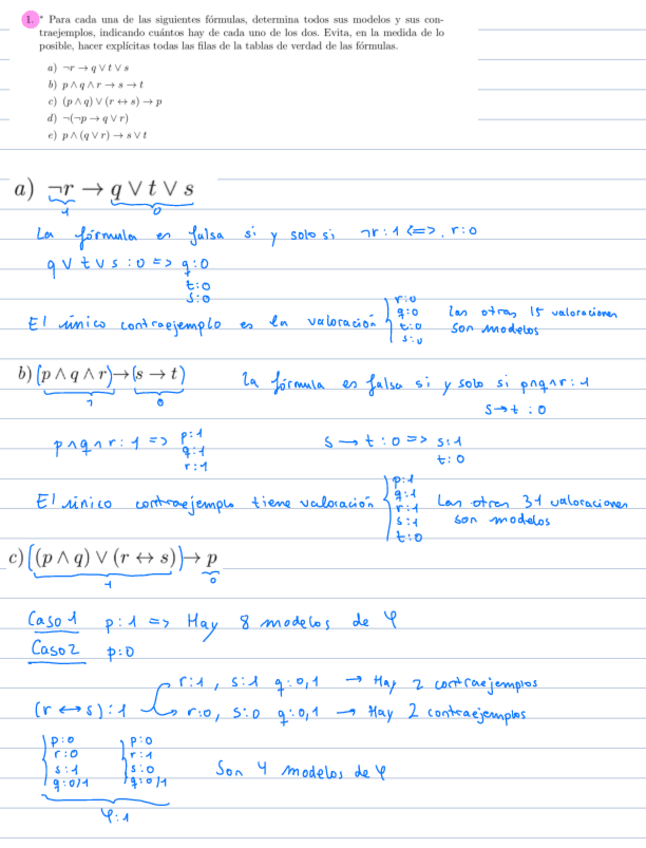 1. * Para cada una de las siguientes fórmulas, determina todos sus modelos y sus con-
traejemplos, indicando cuántos hay de cada uno de los dos. Evita, en la medida de lo
posible, hacer explícitas todas las filas de la tablas de verdad de las fórmulas.
a) ¬r → q ∨ t ∨ s
b) p ∧ q ∧ r → s → t
c) (p ∧ q) ∨ (r ↔ s) → p
d) ¬(¬p → q ∨ r)
e) p ∧ (q ∨ r) → s ∨ t
a) ¬r → q ∨ t ∨ s
1 0
La fórmula es falsa si y solo si ¬r:1 <=> r:0
q ∨ t ∨ s : 0 => q:0
t:0
s:0
El único contraejemplo es la valoración { r:0 las otras 15 valoraciones
q:0 son modelos
t:0
s:0
b) (p ∧ q ∧ r) → (s → t) la fórmula es falsa si y solo si p∧q∧r : 1
1 0 s→t : 0
p∧q∧r : 1 => p:1 s → t : 0 => s:1
q:1 t:0
r:1
El único contraejemplo tiene valoración { p:1 Las otras 31 valoraciones
q:1 son modelos
r:1
s:1
t:0
c) ((p ∧ q) ∨ (r ↔ s)) → p
1 0
Caso 1 p:1 => Hay 8 modelos de φ
Caso 2 p:0
r:1, s:1 q:0,1 → Hay 2 contraejemplos
(r ↔ s):1
r:0, s:0 q:0,1 → Hay 2 contraejemplos
{ p:0 { p:0
r:0 r:1
s:1 s:0 Son 4 modelos de φ
q:0/1 q:0/1
φ:1